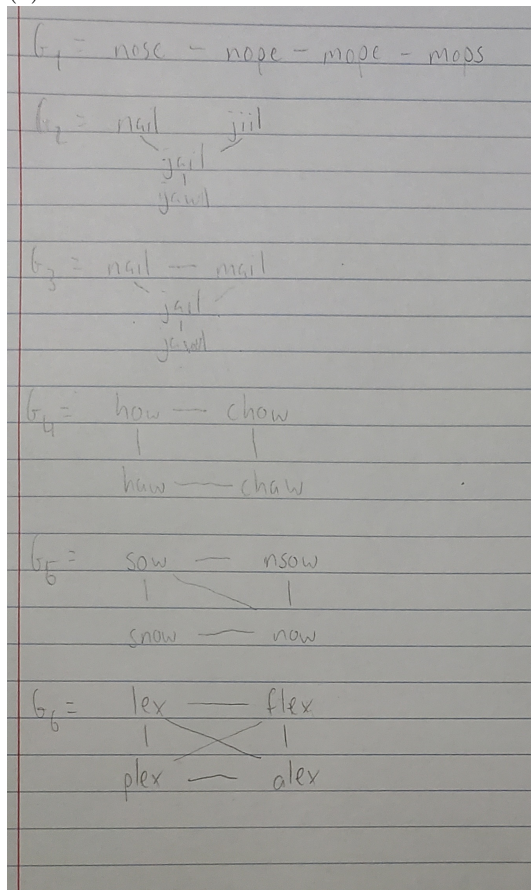 G1 = nose - nope - mope - mops
G2 = nail jiil
jail
jawl
G3 = nail — mail
jail
jawl
G4 = how — chow
haw — chaw
G5 = sow — nsow
snow — now
G6 = lex — flex
plex — alex